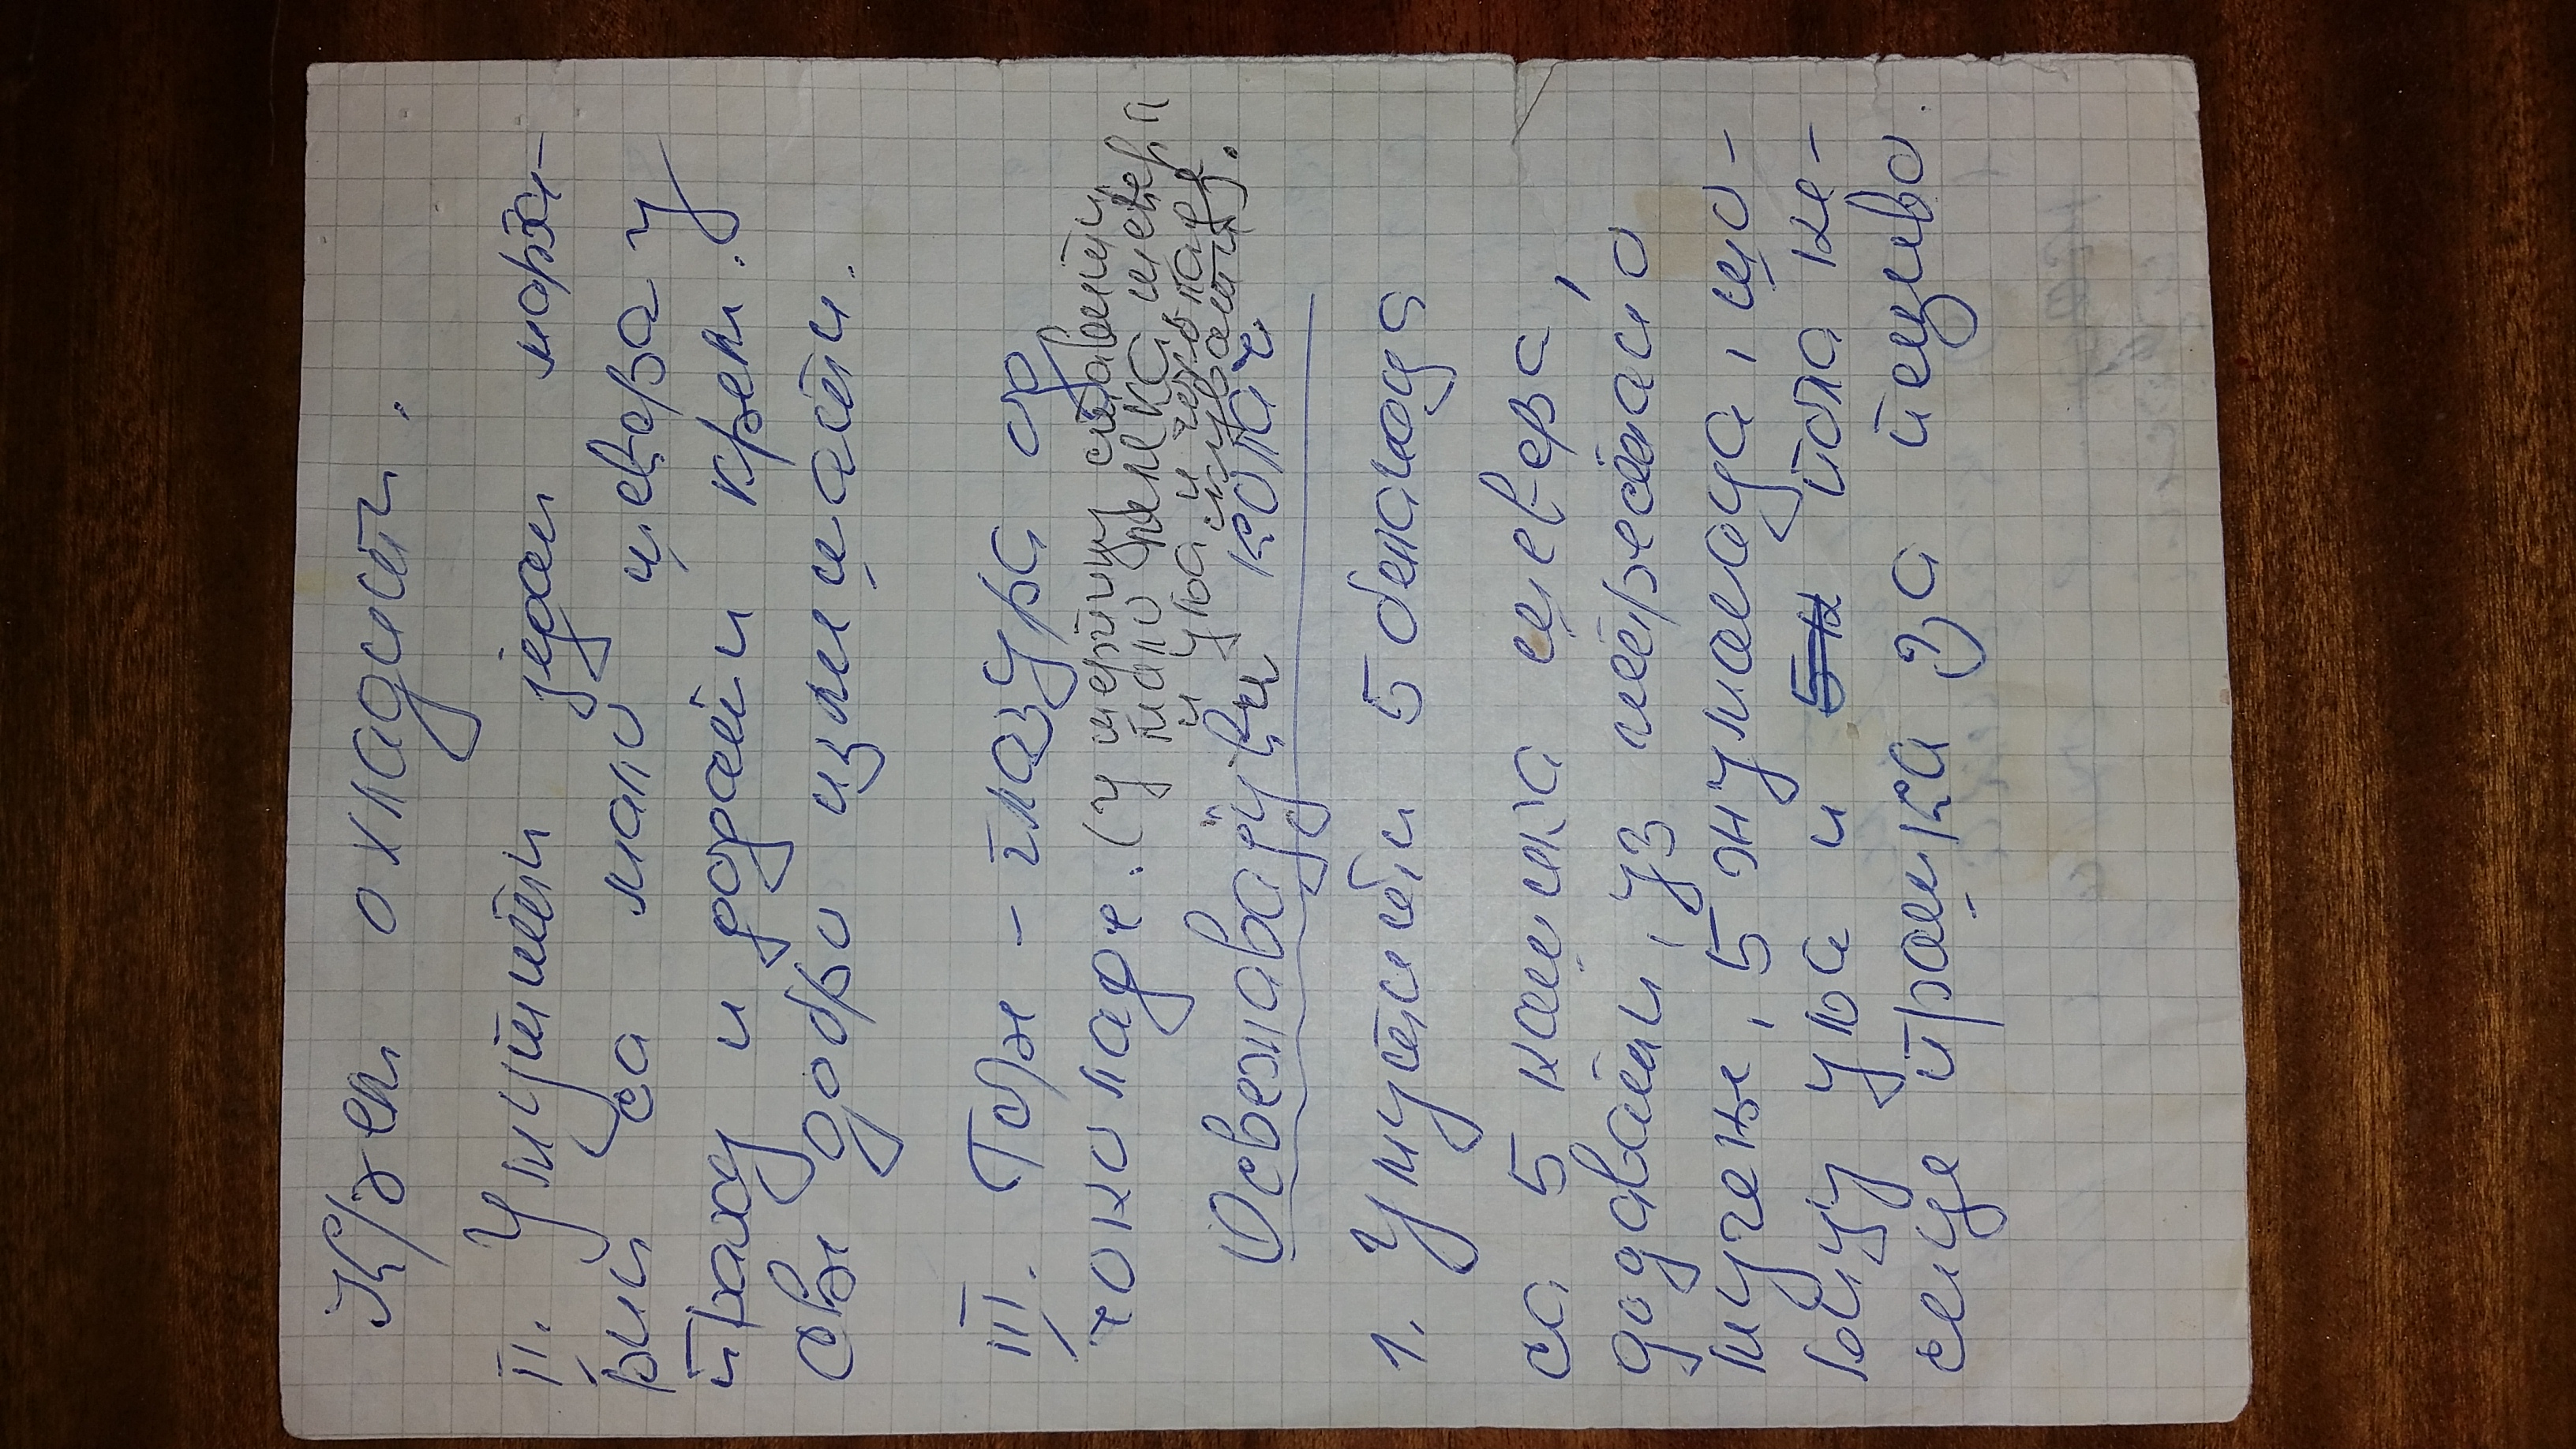 Крем охладити.
II. Умутити један марга-
рин са мало шећера у
праху и додати крем.
Све добро измешати.
III. Горе - глазура од
чоколаде. (у шерпицу ставити
мало млека, шећера
и уља и чоколаде
кувати).
Освежавајући колач
1. Умутити 5 беланаца
са 5 кашика шећера,
додавати, уз непрестано
мућење, 5 жуманаца, шо-
љицу уља и 5 к пола ке-
сице прашка за пециво.